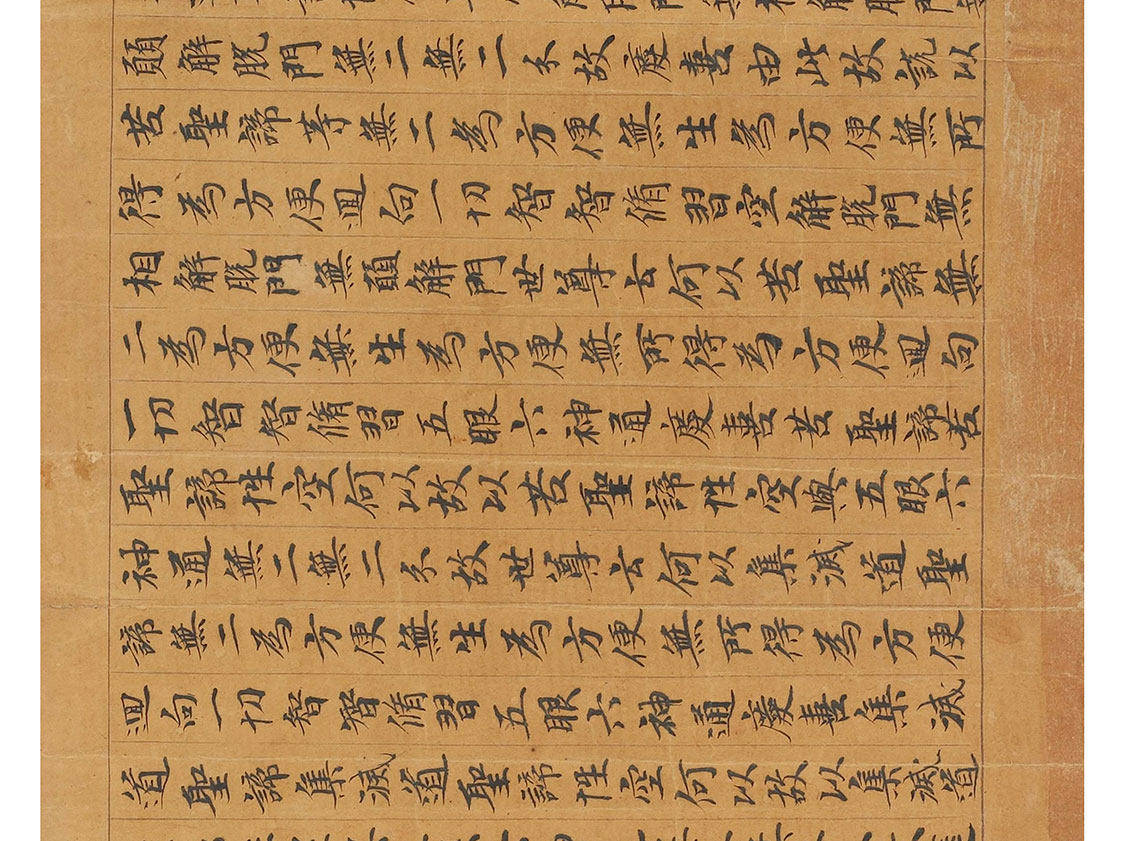 願解脫門無二無二分故慶喜由此故說以
苦聖諦等無二為方便無生為方便無所
得為方便迴向一切智智脩習空解脫門無
相解脫門無願解門世尊云何以苦聖諦無
二為方便無生為方便無所得為方便迴向
一切智智脩習五眼六神通慶喜苦聖諦苦
聖諦性空何以故以苦聖諦性空與五眼六
神通無二無二分故世尊云何以集滅道聖
諦無二為方便無生為方便無所得為方便
迴向一切智智脩習五眼六神通慶喜集滅
道聖諦集滅道聖諦性空何以故以集滅道